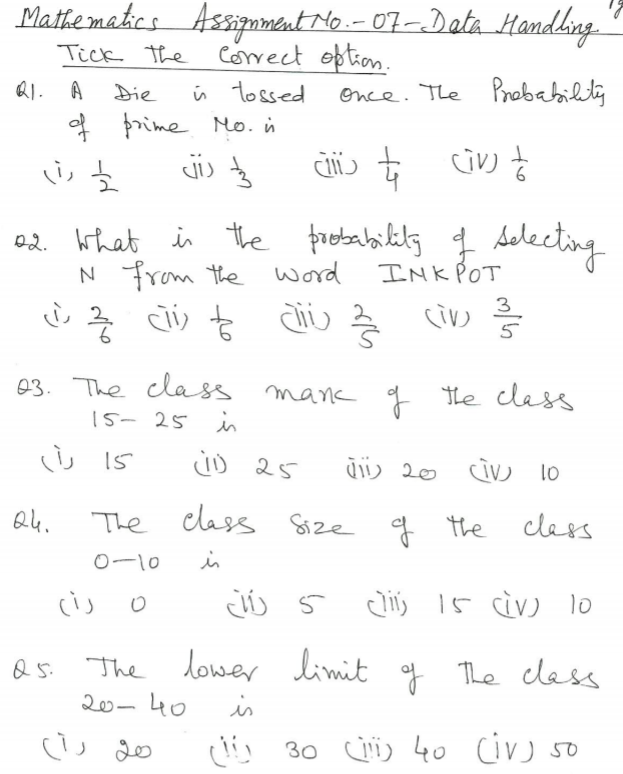 Mathematics Assignment No. - 07 - Data Handling.
Tick the Correct option.
Q1. A Die is tossed once. The Probability
of prime No. is
(i) 1/2 (ii) 1/3 (iii) 1/4 (iv) 1/6
Q2. What is the probability of selecting
N from the word INKPOT
(i) 2/6 (ii) 1/6 (iii) 2/5 (iv) 3/5
Q3. The class mark of the class
15 - 25 is
(i) 15 (ii) 25 (iii) 20 (iv) 10
Q4. The class size of the class
0-10 is
(i) 0 (ii) 5 (iii) 15 (iv) 10
Q5. The lower limit of the class
20-40 is
(i) 20 (ii) 30 (iii) 40 (iv) 50